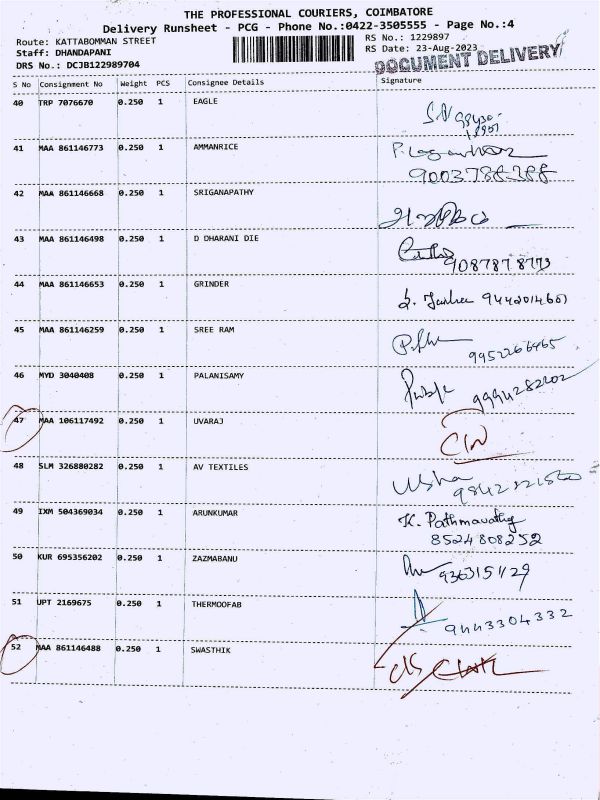 THE PROFESSIONAL COURIERS, COIMBATORE
Delivery Runsheet - PCG - Phone No.:0422-3505555 - Page No.:4
Route: KATTABOMMAN STREET
RS No.: 1229897
Staff: DHANDAPANI
RS Date: 23-Aug-2023
DOCUMENT DELIVERY
DRS No.: DCJB122989704
S No Consignment No Weight PCS Consignee Details Signature
40 TRP 7076670 0.250 1 EAGLE
41 MAA 861146773 0.250 1 AMMANRICE
9003788288
42 MAA 861146668 0.250 1 SRIGANAPATHY
43 MAA 861146498 0.250 1 D DHARANI DIE
9087878773
44 MAA 861146653 0.250 1 GRINDER
9442014601
45 MAA 861146259 0.250 1 SREE RAM
9952266465
46 MYD 3040408 0.250 1 PALANISAMY
9994282202
47 MAA 106117492 0.250 1 UVARAJ
48 SLM 326880282 0.250 1 AV TEXTILES
Usha
49 IXM 504369034 0.250 1 ARUNKUMAR
K. Pathmavathy
8524808252
50 KUR 695356202 0.250 1 ZAZMABANU
9363151129
51 UPT 2169675 0.250 1 THERMOOFAB
9443304332
52 MAA 861146488 0.250 1 SWASTHIK